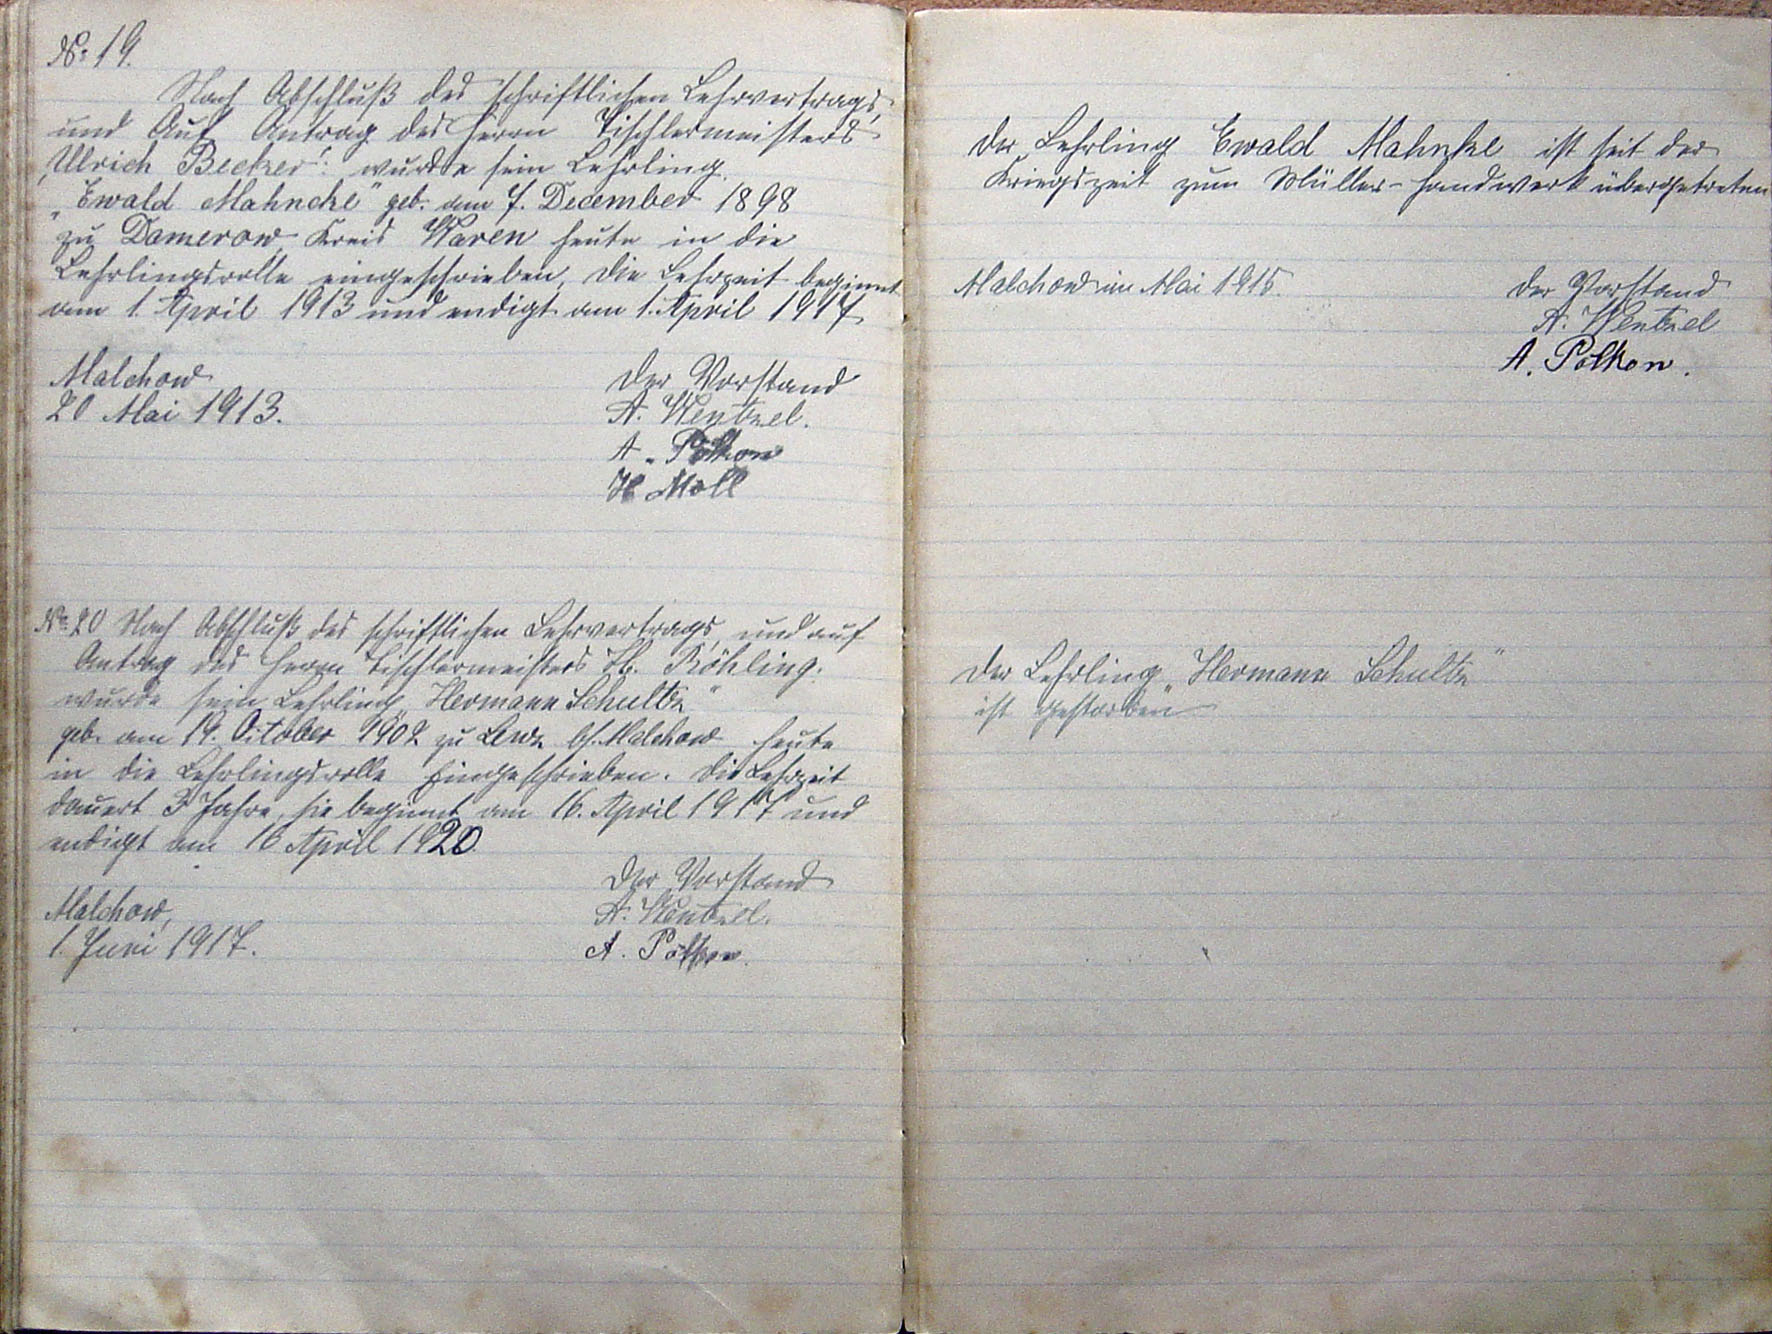 No 19.
Nach Abschluß des schriftlichen Lehrvertrags,
und Auf Antrag des Herrn Tischlermeisters
„Ulrich Becker“ wurde sein Lehrling
„Ewald Mahncke“ geb. am 7. December 1898
zu Damerow Kreis Waren heute in die
Lehrlingsrolle eingeschrieben, die Lehrzeit beginnt
am 1. April 1913 und endigt am 1. April 1917
Malchow
20 Mai 1913.
Der Vorstand
A. Wentzel.
A. Pölkow
H Moll
No 20 Nach Abschluß des schriftlichen Lehrvertrags, und auf
Antrag des Herrn Tischlermeisters H. Röhling.
wurde sein Lehrling „Hermann Schultz“
geb. am 19. October 1902 zu Lenz b/. Malchow heute
in die Lehrlingsrolle Eingeschrieben. Die Lehrzeit
dauert 3 Jahre, sie beginnt am 16. April 1917 und
endigt am 16 April 1920.
Der Vorstand
A. Wentzel.
A. Pölkow.
Malchow,
1. Juni 1917.
Der Lehrling Ewald Mahnke ist seit der
Kriegszeit zum Müller-Handwerk übergetreten
Malchow im Mai 1915.
Der Vorstand
A. Wentzel
A. Pölkow.
Der Lehrling „Hermann Schultz“
ist gestorben